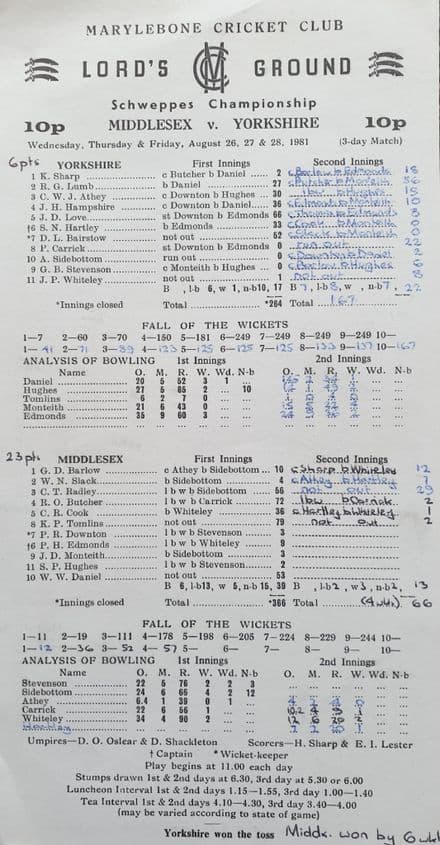 MARYLEBONE CRICKET CLUB
LORD'S MCC GROUND
Schweppes Championship
10p MIDDLESEX v. YORKSHIRE 10p
Wednesday, Thursday & Friday, August 26, 27 & 28, 1981 (3-day Match)
6pts YORKSHIRE First Innings Second Innings
1 K. Sharp c Butcher b Daniel 2 c Barlow b Edmonds 18
2 R. G. Lumb b Daniel 27 c Butcher b Monteith 56
3 C. W. J. Athey c Downton b Hughes 30 lbw b Hughes 15
4 J. H. Hampshire c Downton b Daniel 36 c Edmonds b Monteith 10
5 J. D. Love st Downton b Edmonds 66 b Edmonds 3
†6 S. N. Hartley b Edmonds 33 c Cook b Monteith 0
*7 D. L. Bairstow not out 52 b Monteith 0
8 P. Carrick st Downton b Edmonds 0 run out 22
10 A. Sidebottom run out 0 c Downton b Daniel 2
9 G. B. Stevenson c Monteith b Hughes 0 c Barlow b Hughes 6
11 J. P. Whiteley not out 1 not out 8
B ,l-b 6, w 1, n-b10, 17 B 7, l-b 8, w , n-b 7, 22
*Innings closed Total *264 Total 167
FALL OF THE WICKETS
1—7 2—60 3—70 4—150 5—181 6—249 7—249 8—249 9—249 10—
1—41 2—71 3—89 4—123 5—125 6—125 7—125 8—133 9—137 10—167
ANALYSIS OF BOWLING 1st Innings 2nd Innings
Name O. M. R. W. Wd. N-b O. M. R. W. Wd. N-b
Daniel 20 5 52 3 1 ...
Hughes 27 5 85 2 ... 10
Tomlins 6 2 7 0 ... ...
Monteith 21 6 43 0 ... ...
Edmonds 35 9 60 3 ... ...
23pts MIDDLESEX First Innings Second Innings
1 G. D. Barlow c Athey b Sidebottom 10 c Sharp b Whiteley 12
2 W. N. Slack b Sidebottom 4 c Athey b Hartley 7
3 C. T. Radley l b w b Sidebottom 56 not out 29
4 R. O. Butcher l b w b Carrick 72 lbw b Carrick 2
5 C. R. Cook b Whiteley 36 c Hartley b Whiteley 1
8 K. P. Tomlins not out 79 not out 2
*7 P. R. Downton l b w b Stevenson 3
†6 P. H. Edmonds l b w b Whiteley 9
9 J. D. Monteith b Sidebottom 3
11 S. P. Hughes l b w b Stevenson 2
10 W. W. Daniel not out 53
B 6, l-b13, w 5, n-b 15, 39 B , l-b2 , w3 , n-b2, 13
*Innings closed Total *366 Total (4 wkts) 66
FALL OF THE WICKETS
1—11 2—19 3—111 4—178 5—198 6—205 7—224 8—229 9—244 10—
1—12 2—36 3—52 4—57 5— 6— 7— 8— 9— 10—
ANALYSIS OF BOWLING 1st Innings 2nd Innings
Name O. M. R. W. Wd. N-b O. M. R. W. Wd. N-b
Stevenson 22 5 76 2 2 3
Sidebottom 24 6 65 4 2 12
Athey 6.4 1 39 0 1 ...
Carrick 22 6 56 1 ... ... 10.2 4 3 1
Whiteley 34 4 90 2 ... ... 12 6 20 2
Hartley
Umpires—D. O. Oslear & D. Shackleton Scorers—H. Sharp & E. I. Lester
† Captain * Wicket-keeper
Play begins at 11.00 each day
Stumps drawn 1st & 2nd days at 6.30, 3rd day at 5.30 or 6.00
Luncheon Interval 1st & 2nd days 1.15—1.55, 3rd day 1.00—1.40
Tea Interval 1st & 2nd days 4.10—4.30, 3rd day 3.40—4.00
(may be varied according to state of game)
Yorkshire won the toss Middx. won by 6 wkt